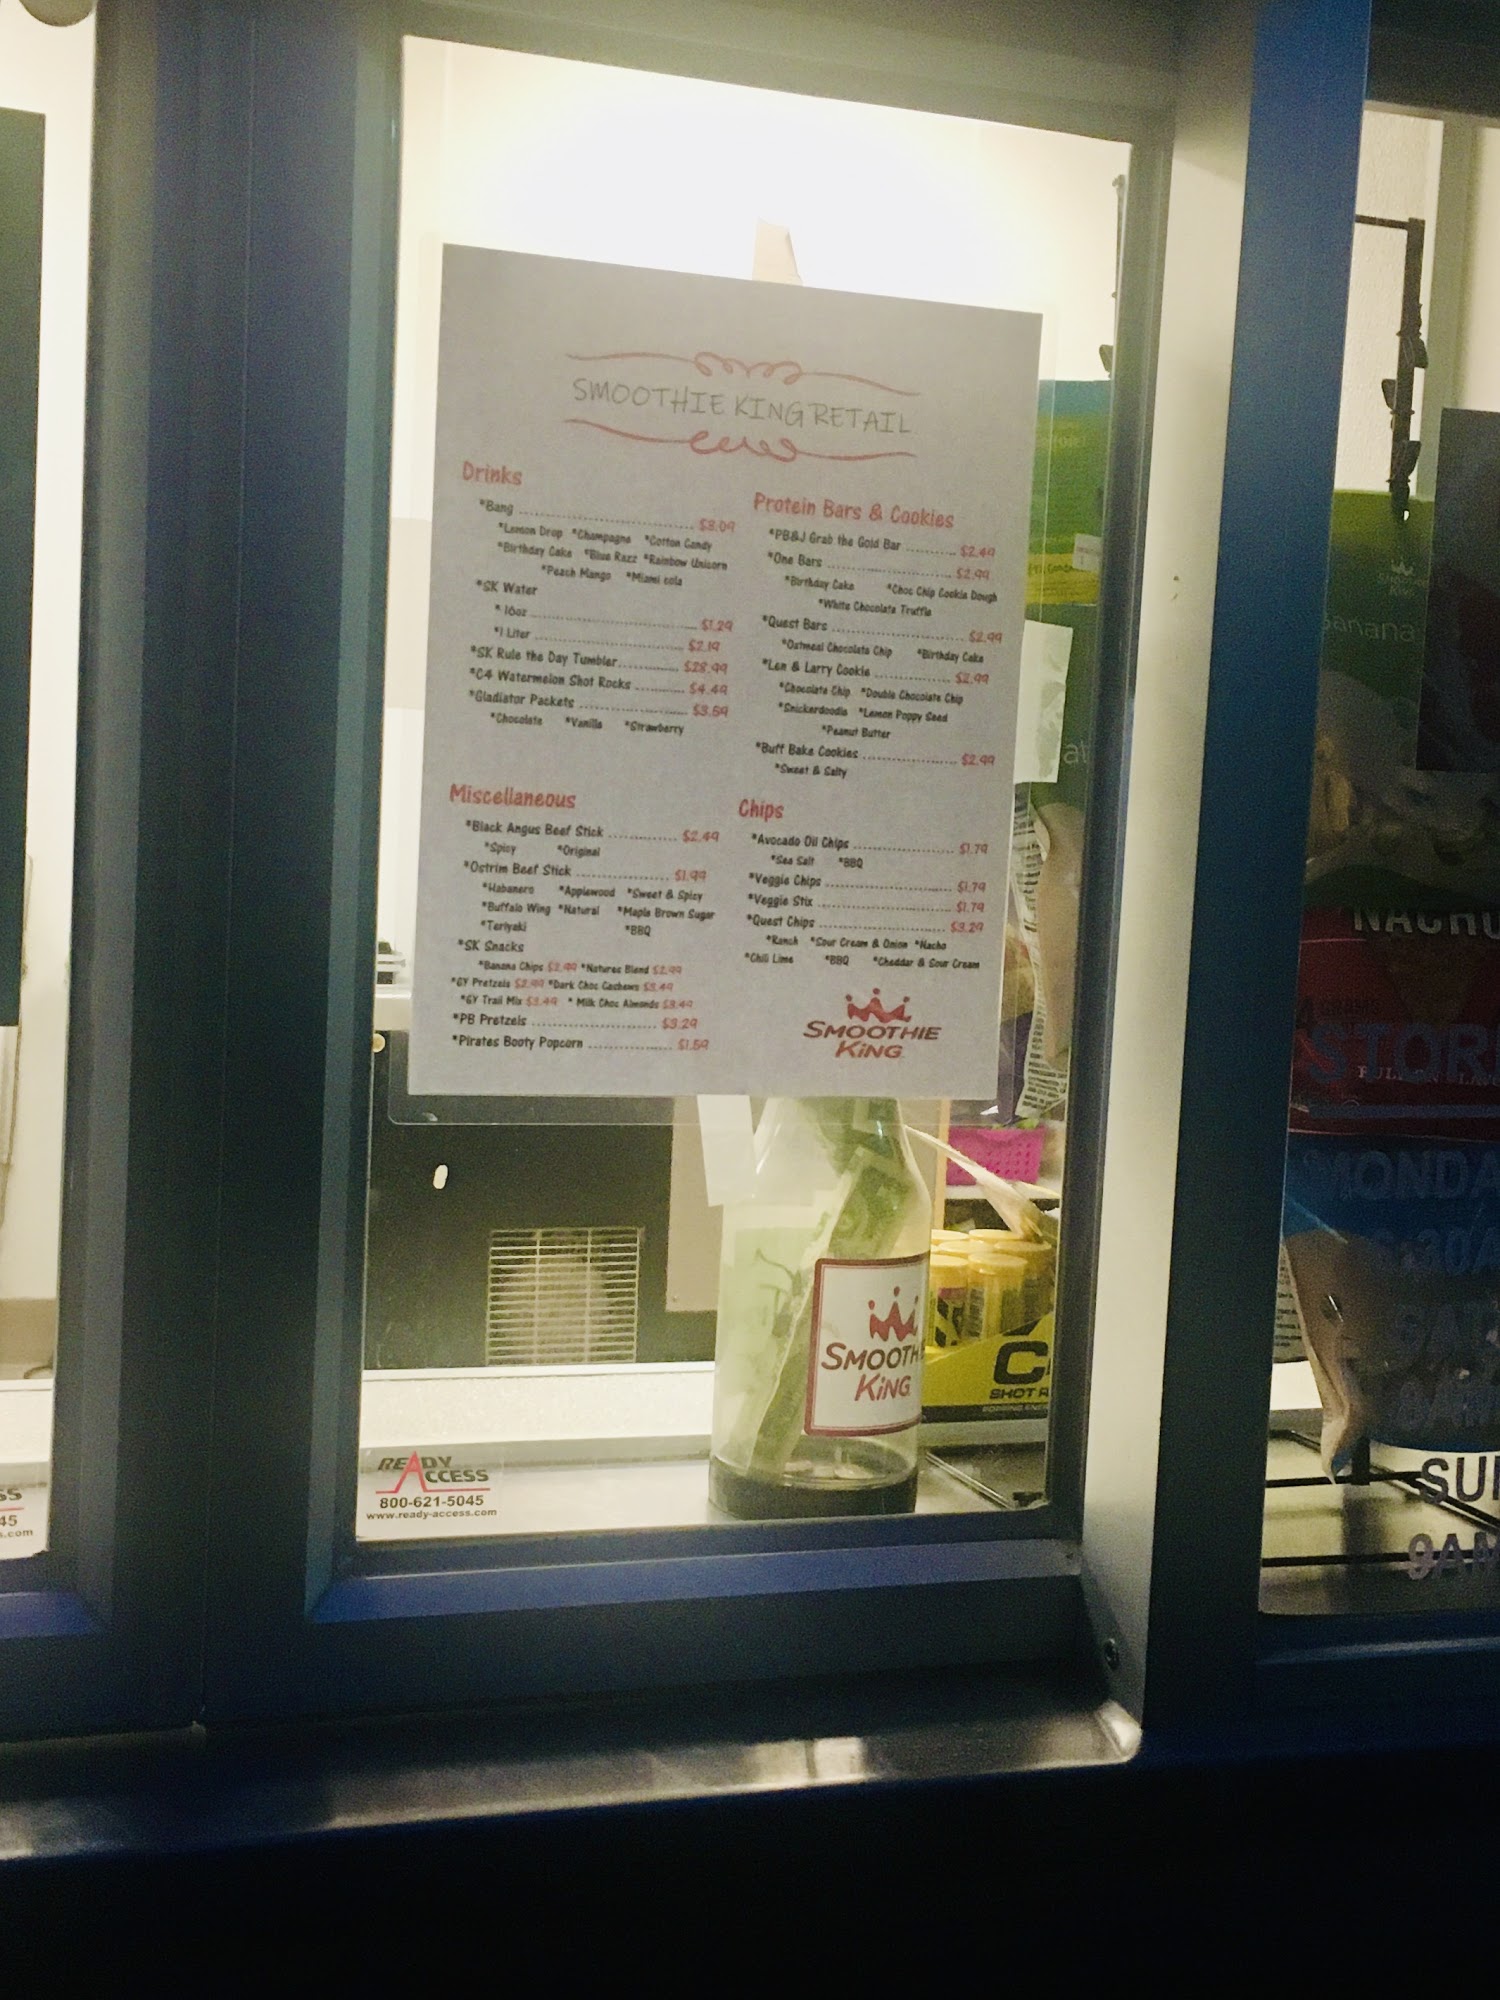 SMOOTHIE KING RETAIL
Drinks
*Bang ........ $3.09
*Lemon Drop *Champagne *Cotton Candy
*Birthday Cake *Blue Razz *Rainbow Unicorn
*Peach Mango *Miami cola
*SK Water
* 16oz ........ $1.29
*1 Liter ........ $2.19
*SK Rule the Day Tumbler........ $28.99
*C4 Watermelon Shot Rocks ........ $4.49
*Gladiator Packets ........ $3.59
*Chocolate *Vanilla *Strawberry
Miscellaneous
*Black Angus Beef Stick ........ $2.49
*Spicy *Original
*Ostrim Beef Stick ........ $1.99
*Habanero *Applewood *Sweet & Spicy
*Buffalo Wing *Natural *Maple Brown Sugar
*Teriyaki *BBQ
*SK Snacks
*Banana Chips $2.99 *Natures Blend $2.99
*GY Pretzels $2.99 *Dark Choc Cashews $3.49
*GY Trail Mix $3.49 * Milk Choc Almonds $3.49
*PB Pretzels ........ $3.29
*Pirates Booty Popcorn ........ $1.59
Protein Bars & Cookies
*PB&J Grab the Gold Bar ........ $2.49
*One Bars ........ $2.99
*Birthday Cake *Choc Chip Cookie Dough
*White Chocolate Truffle
*Quest Bars ........ $2.99
*Oatmeal Chocolate Chip *Birthday Cake
*Len & Larry Cookie ........ $2.99
*Chocolate Chip *Double Chocolate Chip
*Snickerdoodle *Lemon Poppy Seed
*Peanut Butter
*Buff Bake Cookies ........ $2.99
*Sweet & Salty
Chips
*Avocado Oil Chips ........ $1.79
*Sea Salt *BBQ
*Veggie Chips ........ $1.79
*Veggie Stix ........ $1.79
*Quest Chips ........ $3.29
*Ranch *Sour Cream & Onion *Nacho
*Chili Lime *BBQ *Cheddar & Sour Cream
SMOOTHIE
KING
SMOOTHIE
KING
SHOT R
READY
ACCESS
800-621-5045
www.ready-access.com
SS
45
s.com
Banana
NACHO
STOR
MONDA
:30A
SUN
9AM